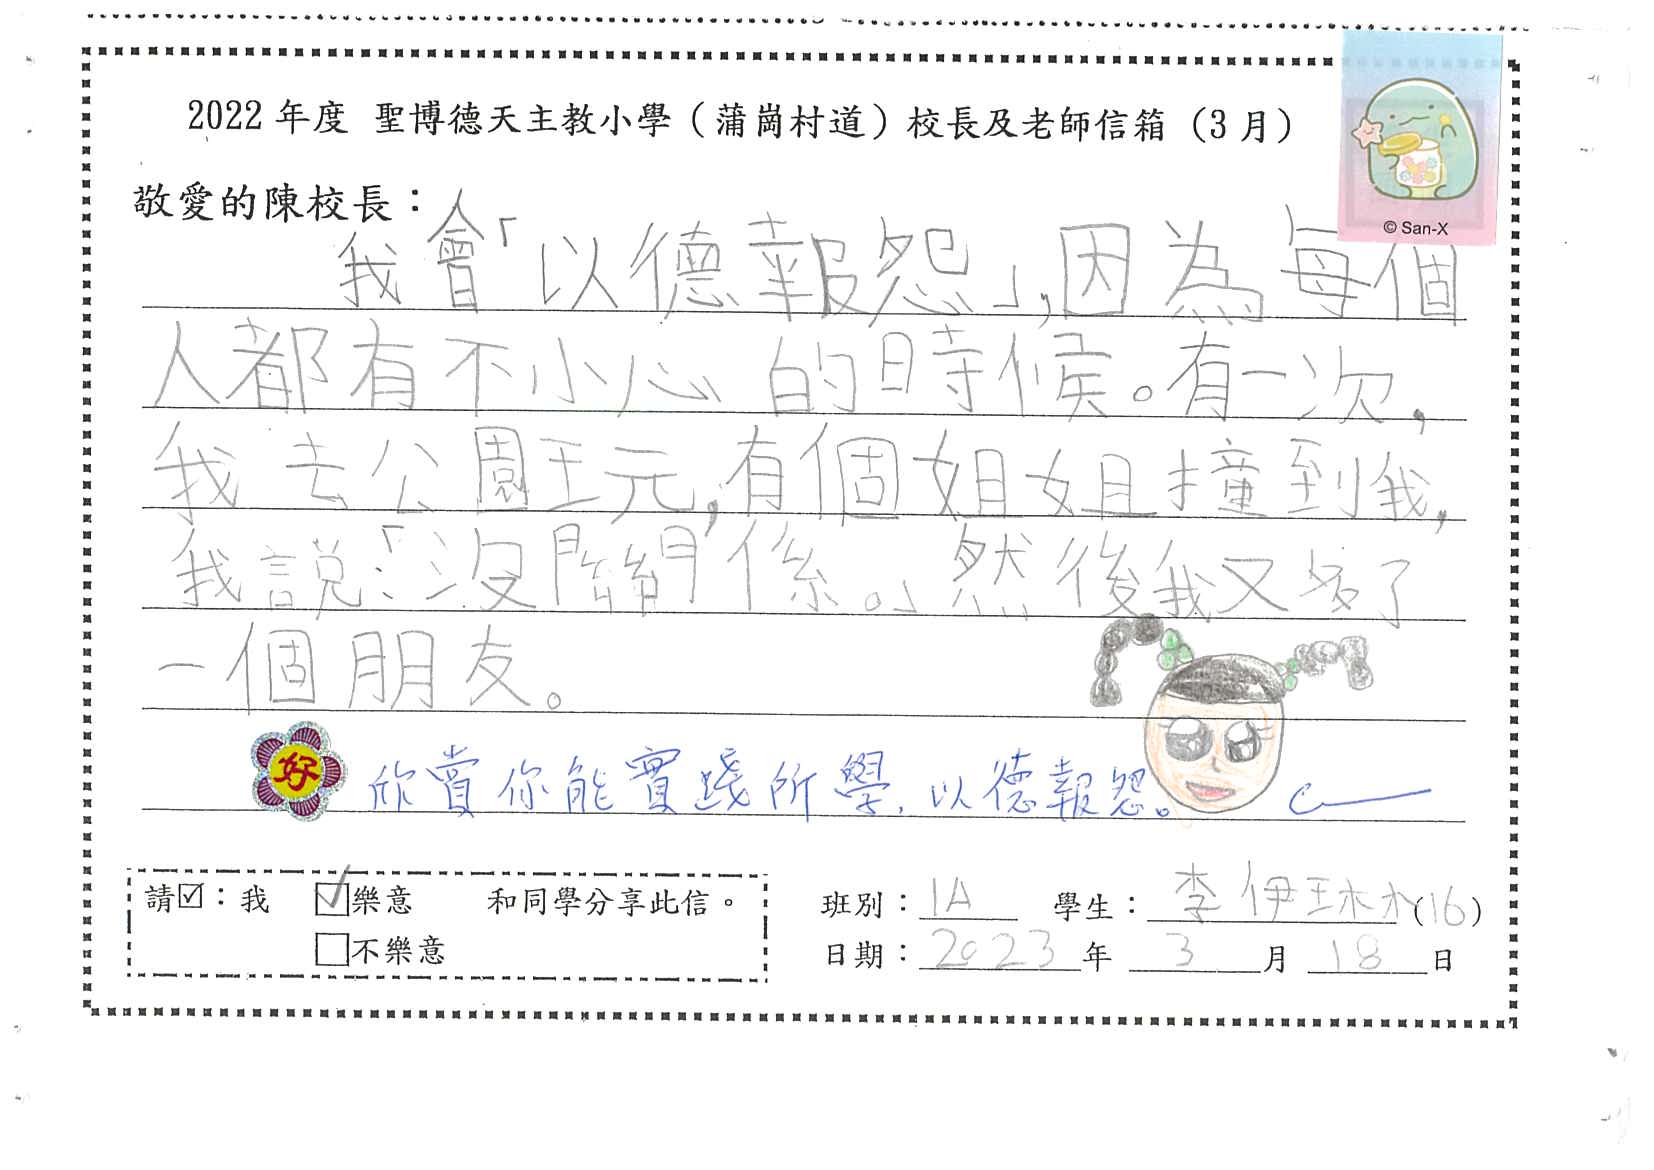 2022 年度 聖博德天主教小學（蒲崗村道）校長及老師信箱（3 月）
© San-X
敬愛的陳校長：
我會「以德報怨」，因為每個
人都有不小心的時候。有一次，
我去公園玩，有個姐姐撞到我，
我說：「沒關係。」然後我又多了
一個朋友。
好
欣賞你能實踐所學，以德報怨。
請☑：我 ☑樂意 和同學分享此信。
☐不樂意
班別：1A 學生：李伊琳（16）
日期：2023 年 3 月 18 日